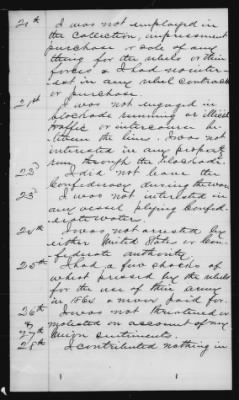 20th I was not employed in
the collection, impressment
purchase or sale of any
thing for the rebels or their
forces & I had no inter-
est in any rebel contracts
or purchase.
21st I was not engaged in
blockade running or illicit
traffic or intercourse be-
tween the lines. I was not
interested in any property
run through the blockade.
22d I did not leave the
Confederacy during the war
23d I was not interested in
any vessel plying Confed-
erate water.
24th I was not arrested by
either United States or Con-
federate authority
25th I had a few shocks of
wheat pressed by the rebels
for the use of their army
in 1865 & never paid for.
26th I was not threatened or
& molested on account of my
27th Union sentiments.
28th I contributed nothing in